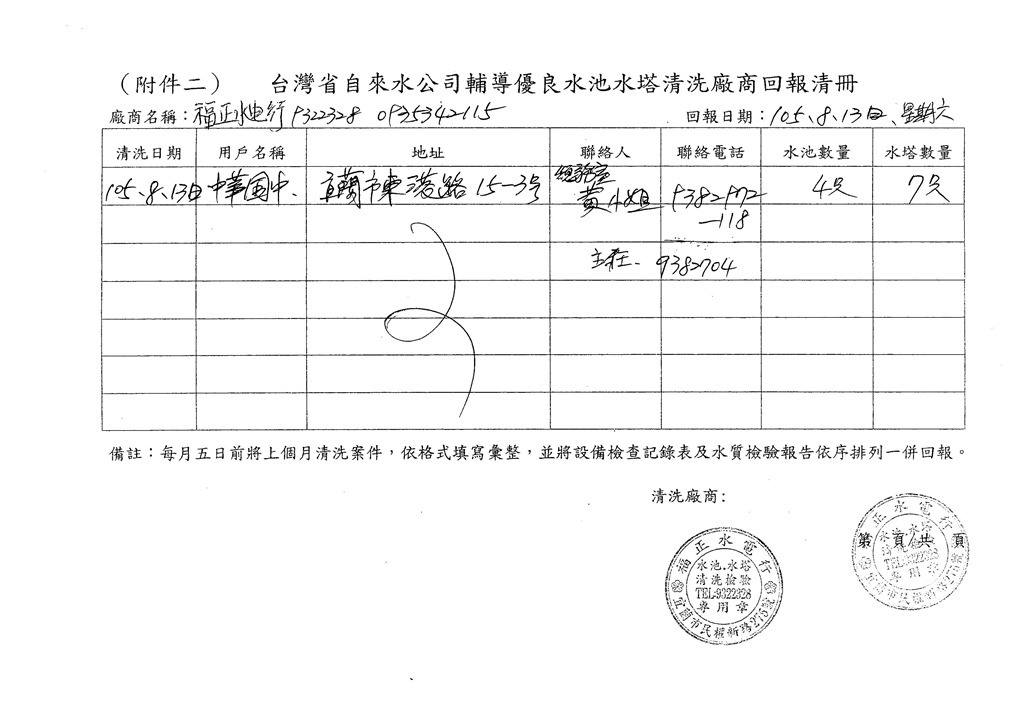 (附件二) 台灣省自來水公司輔導優良水池水塔清洗廠商回報清冊
廠商名稱：福正水电行 9322328 0935342115 回報日期：105.8.13日、星期六
清洗日期 用戶名稱 地址 聯絡人 聯絡電話 水池數量 水塔數量
105.8.13日 中華國中、 宜蘭市東港路15-3号 總務室 黃小姐 9382972 4只 7只
-118
主任、 9382704
備註：每月五日前將上個月清洗案件，依格式填寫彙整，並將設備檢查記錄表及水質檢驗報告依序排列一併回報。
清洗廠商：
福正水電行
水池.水塔
清洗檢驗
TEL:9322328
專用章
宜蘭市民權新路276號
第 頁/共 頁
福正水電行
水池.水塔
清洗檢驗
TEL:9322328
專用章
宜蘭市民權新路276號